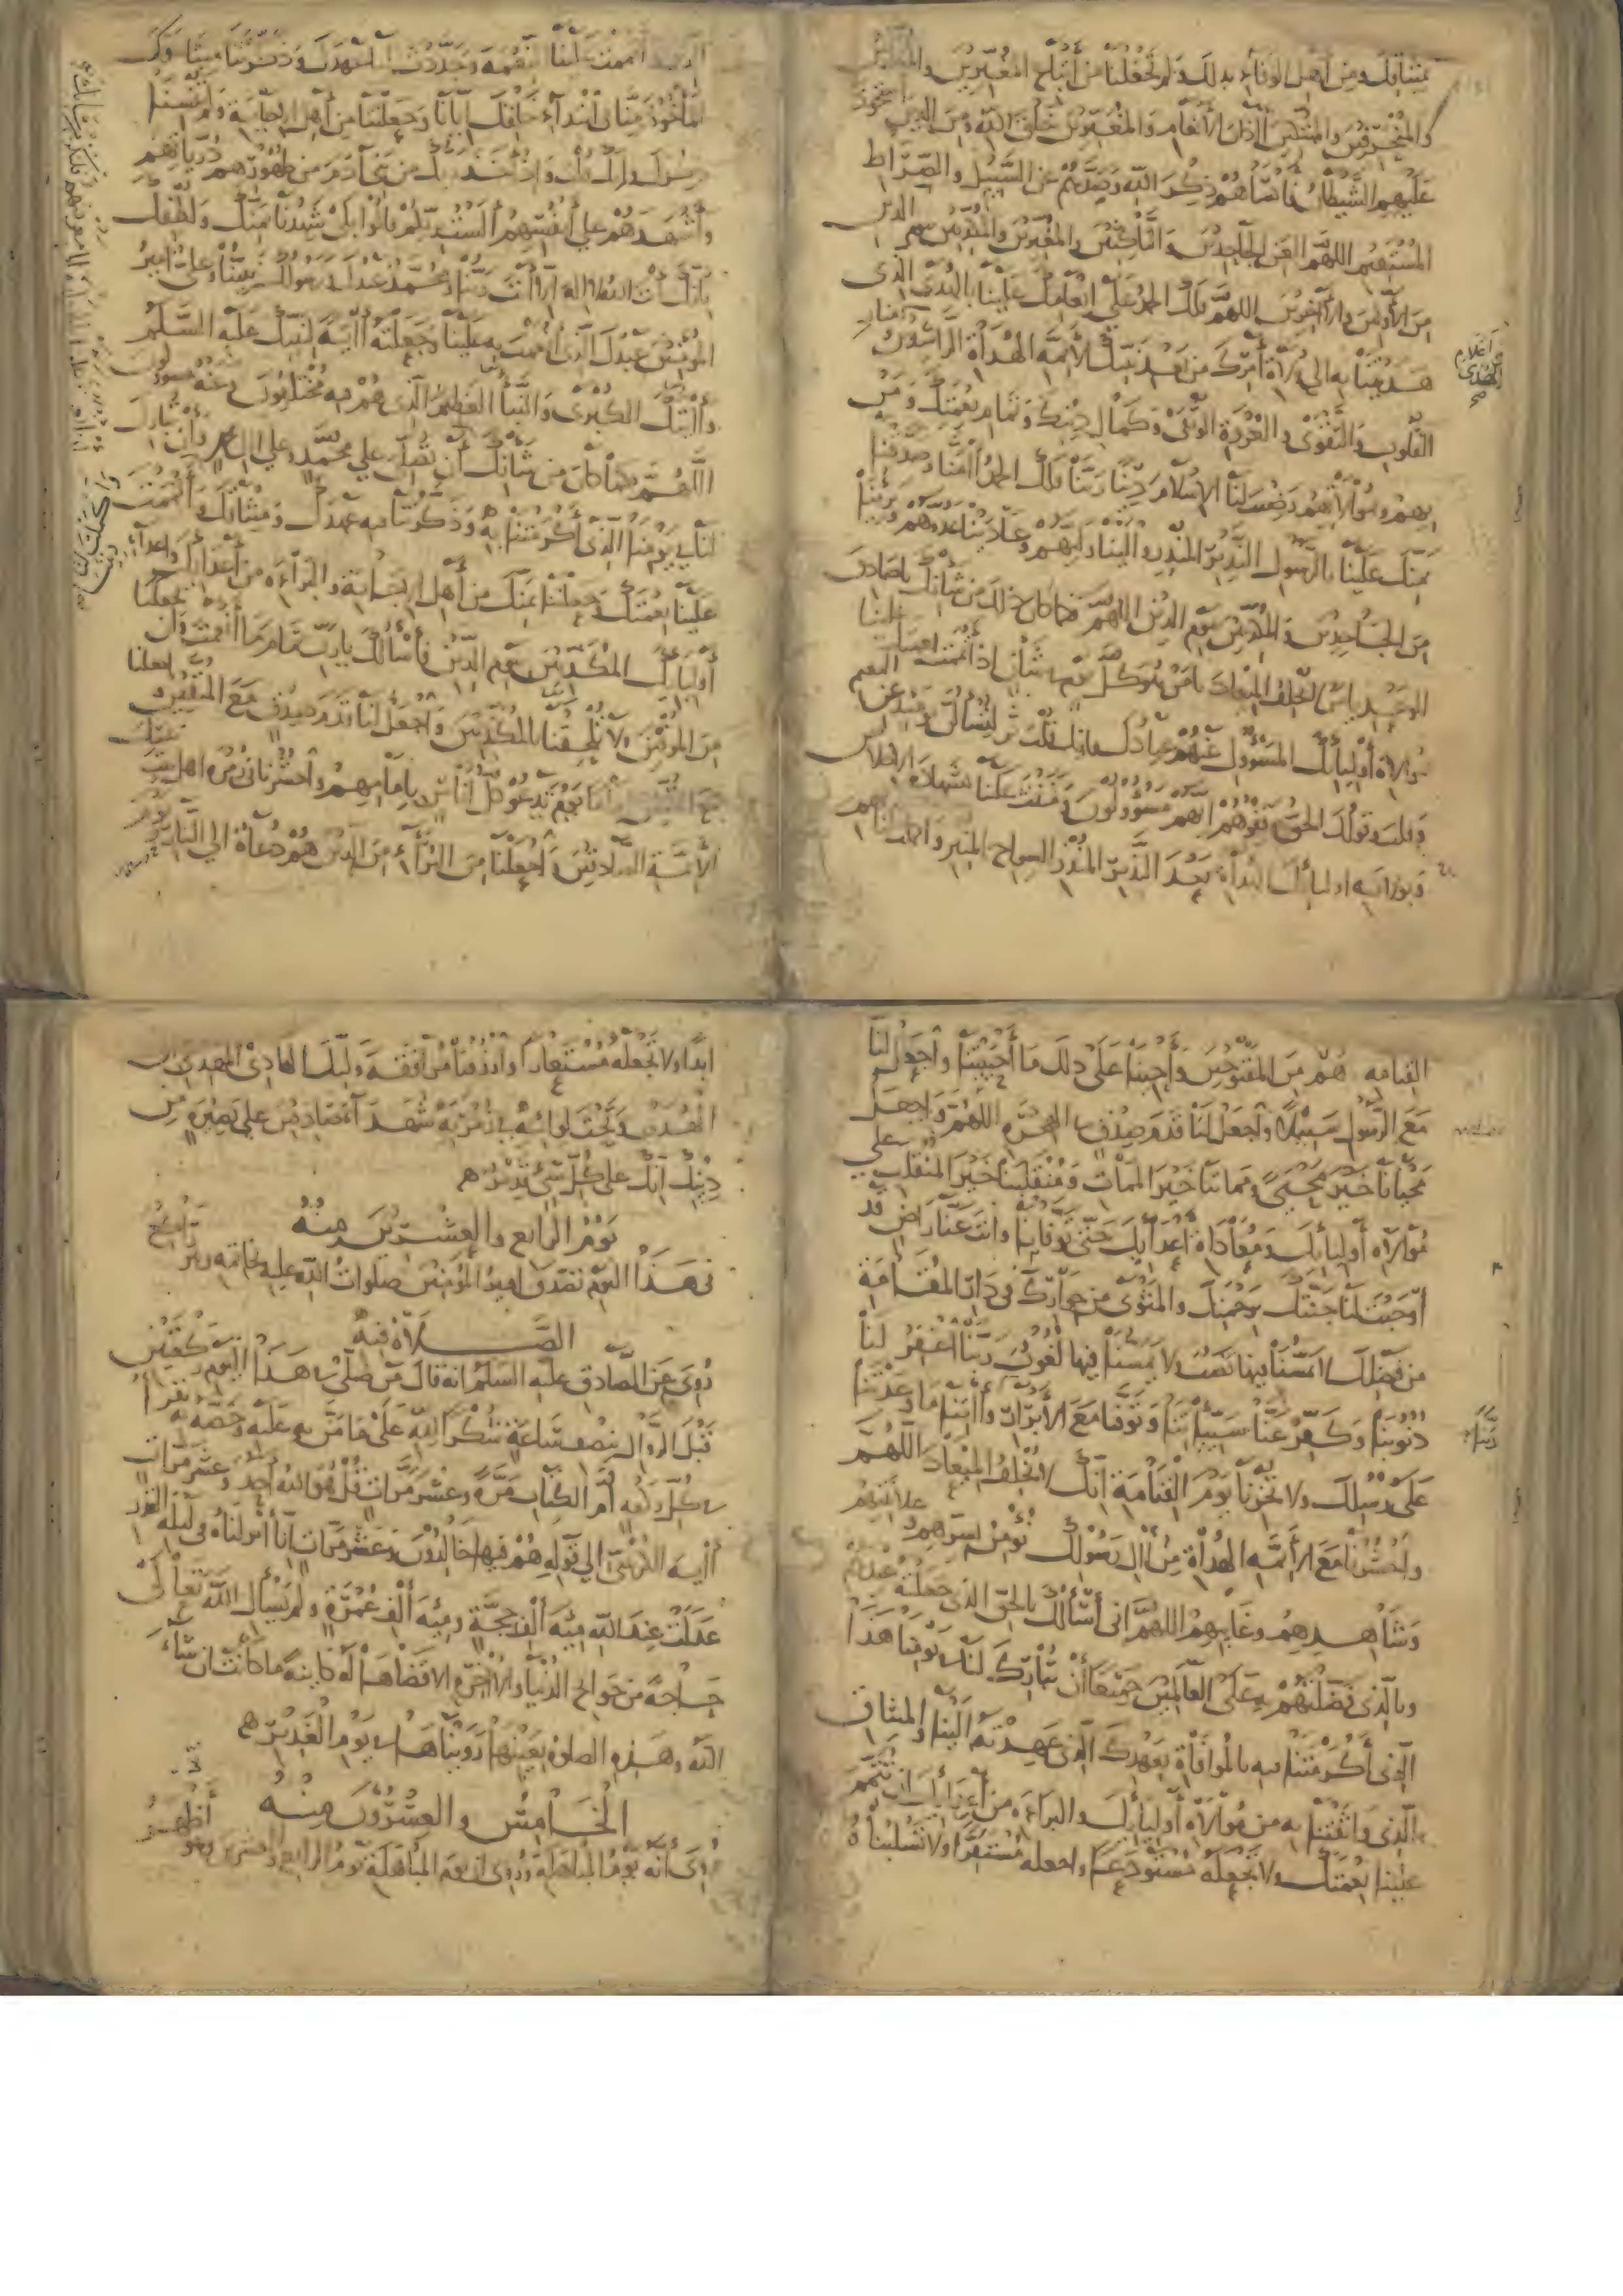 بميثاقك ومن اهل الوفاء بذلك ولم تجعلنا من اتباع المغيرين والمبدلين
والمنحرفين والمبتكين اذان الانعام والمغيرين خلق الله ومن الذين استحوذ
عليهم الشيطان فانساهم ذكر الله وصدهم عن السبيل والصراط
المستقيم اللهم العن الجاحدين والناكثين والمغيرين والمكذبين بيوم الدين
من الاولين والاخرين اللهم فلك الحمد على انعامك علينا بالهدى الذى
هديتنا به الى ولاة امرك من بعد نبيك الائمة الهداة الراشدين ومنار
اعلام الهدى
القلوب والتقوى والعروة الوثقى وكمال دينك وتمام نعمتك ومن
بهم وبموالاتهم رضيت لنا الاسلام دينا ربنا فلك الحمد امنا وصدقنا
بمنك علينا بالرسول النذير المنذر والينا وليهم وعادينا عدوهم وبرئنا
من الجاحدين والمكذبين بيوم الدين اللهم فكما كان ذلك من شانك يا صادق
الوعد يا من لا يخلف الميعاد يا من هو كل يوم في شان اذ اتممت علينا
موالاة اوليائك المسؤول عنهم عبادك فانك قلت ثم لتسالن يومئذ عن النعيم
وقلت وقولك الحق وقفوهم انهم مسؤولون ومننت علينا بشهادة الاخلاص
وبولاية اوليائك الهداة بعد النذير المنذر السراج المنير واكملت
اتممت علينا النعمة وجددت لنا عهدك وذكرتنا ميثاقك
الماخوذ منا في ابتداء خلقك ايانا وجعلتنا من اهل الاجابة ولم تنسنا
ذكرك فانك قلت واذ اخذ ربك من بني ادم من ظهورهم ذرياتهم
واشهدهم على انفسهم الست بربكم قالوا بلى شهدنا بمنك ولطفك
بانك انت الله لا اله الا انت ربنا ومحمد عبدك ورسولك نبينا وعلي امير
المؤمنين عبدك الذى انعمت به علينا وجعلته اية لنبيك عليه السلم
وايتك الكبرى والنبا العظيم الذى هم فيه مختلفون وعنه مسؤلون
اللهم فكما كان من شانك ان تصلي علي محمد وعلي ال محمد وان تبارك
لنا في يومنا الذى اكرمتنا به وذكرتنا فيه عهدك وميثاقك واتممت
علينا نعمتك وجعلتنا بمنك من اهل الاجابة والبراءة من اعدائك واعداء
اوليائك المكذبين بيوم الدين فاسالك يا رب تمام ما انعمت وان تجعلنا
من الموفين ولا تلحقنا بالمكذبين واجعل لنا قدم صدق مع المتقين
مع المتقين اماما يوم تدعو كل اناس بامامهم واحشرنا في زمرة اهل بيت نبيك
الائمة الصادقين واجعلنا من البراء من الذين هم دعاة الي النار ويوم
القيامه هم من المقبوحين واحينا على ذلك ما احييتنا واجعل لنا
مع الرسول سبيلا واجعل لنا قدم صدق في الهجرة اللهم واجعل
محيانا خير محيى ومماتنا خير الممات ومنقلبنا خير المنقلب على
موالاة اوليائك ومعاداة اعدائك حتى توفانا وانت عنا راض قد
اوجبت لنا جنتك برحمتك والمثوى من جوارك في دار المقامة
من فضلك لا يمسنا فيها نصب ولا يمسنا فيها لغوب ربنا اغفر لنا
ذنوبنا وكفر عنا سيئاتنا وتوفنا مع الابرار واتنا ما وعدتنا
ربنا
على رسلك ولا تخزنا يوم القيامة انك لا تخلف الميعاد اللهم
واحشرنا مع الائمة الهداة من ال رسولك نؤمن بسرهم وعلانيتهم
وشاهدهم وغائبهم اللهم اني اسالك بالحق الذى جعلته عندهم
وبالذى فضلتهم به على العالمين جميعا ان تبارك لنا في يومنا هذا
الذى اكرمتنا فيه بالموافاة بعهدك الذى عهدته الينا والميثاق
الذى واثقتنا به من موالاة اوليائك والبراءة من اعدائك ان تتمم
علينا نعمتك ولا تجعله مستودعا واجعله مستقرا ولا تسلبناه
ابدا ولا تجعله مستعارا وارزقنا مرافقة وليك الهادى المهدى الى
الهدى وتحت لوائه في زمرته شهداء صادقين على بصيرة من
دينك انك على كل شي قدير
يوم الرابع والعشرين منه
في هذا اليوم تصدق امير المؤمنين صلوات الله عليه بخاتمه وهو راكع
الصلاة فيه
روى عن الصادق عليه السلم انه قال من صلى في هذا اليوم ركعتين
قبل الزوال بنصف ساعة شكرا لله على ما من به عليه وخصه به يقرا
في كل ركعة ام الكتاب مرة وعشر مرات قل هو الله احد وعشر مرات
اية الكرسى الى قوله هم فيها خالدون وعشر مرات انا انزلناه في ليلة القدر
عدلت عند الله مئة الف حجة ومئة الف عمرة ولم يسال الله تعالى
حاجة من حوائج الدنيا والاخرة الا قضاها له كائنة ما كانت ان شاء
الله وهذه الصلوة بعينها رويناها في يوم الغدير
الخامس والعشرون منه
روى انه يوم المباهلة وروى ان يوم المباهلة يوم الرابع والعشرين وهو اظهر